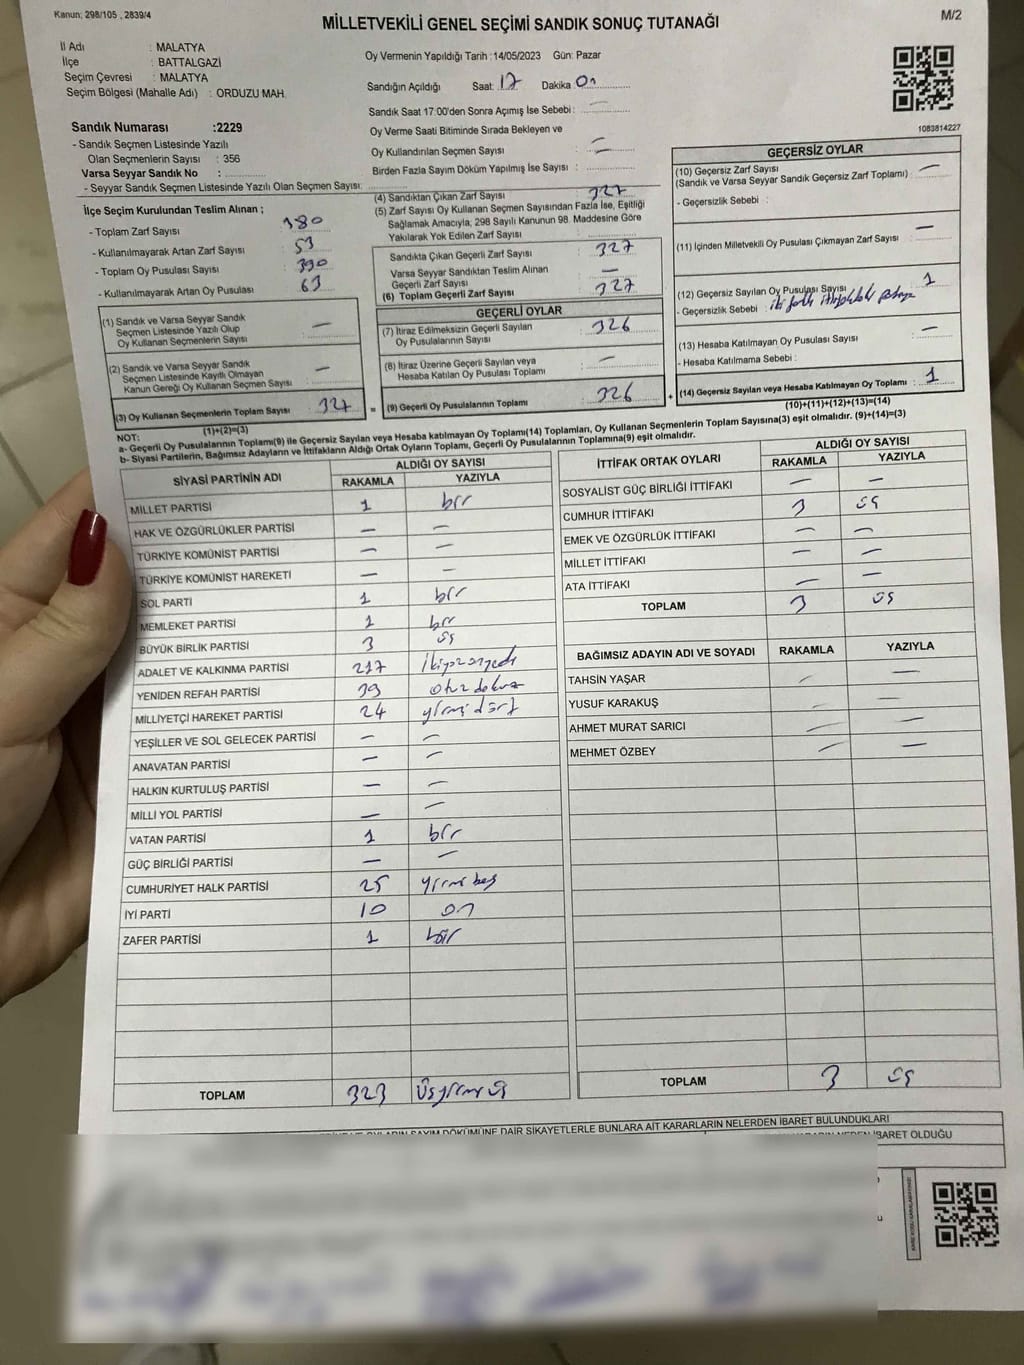 Kanun: 298/105 , 2839/4
M/2
MİLLETVEKİLİ GENEL SEÇİMİ SANDIK SONUÇ TUTANAĞI
İl Adı : MALATYA
İlçe : BATTALGAZİ
Seçim Çevresi : MALATYA
Seçim Bölgesi (Mahalle Adı) : ORDUZU MAH.
Sandık Numarası :2229
- Sandık Seçmen Listesinde Yazılı
Olan Seçmenlerin Sayısı : 356
Varsa Seyyar Sandık No :
- Seyyar Sandık Seçmen Listesinde Yazılı Olan Seçmen Sayısı:
Oy Vermenin Yapıldığı Tarih :14/05/2023 Gün: Pazar
Sandığın Açıldığı Saat: 17 Dakika 01
Sandık Saat 17:00'den Sonra Açımış İse Sebebi : —
Oy Verme Saati Bitiminde Sırada Bekleyen ve
Oy Kullandırılan Seçmen Sayısı : —
Birden Fazla Sayım Döküm Yapılmış İse Sayısı :
1083814227
İlçe Seçim Kurulundan Teslim Alınan ;
- Toplam Zarf Sayısı 380
- Kullanılmayarak Artan Zarf Sayısı 53
- Toplam Oy Pusulası Sayısı 390
- Kullanılmayarak Artan Oy Pusulası 63
(1) Sandık ve Varsa Seyyar Sandık
Seçmen Listesinde Yazılı Olup
Oy Kullanan Seçmenlerin Sayısı —
(2) Sandık ve Varsa Seyyar Sandık
Seçmen Listesinde Kayıtlı Olmayan
Kanun Gereği Oy Kullanan Seçmen Sayısı —
(3) Oy Kullanan Seçmenlerin Toplam Sayısı 327
(1)+(2)=(3)
(4) Sandıktan Çıkan Zarf Sayısı 327
(5) Zarf Sayısı Oy Kullanan Seçmen Sayısından Fazla İse, Eşitliği
Sağlamak Amacıyla; 298 Sayılı Kanunun 98. Maddesine Göre
Yakılarak Yok Edilen Zarf Sayısı
Sandıkta Çıkan Geçerli Zarf Sayısı 327
Varsa Seyyar Sandıktan Teslim Alınan
Geçerli Zarf Sayısı —
(6) Toplam Geçerli Zarf Sayısı 327
GEÇERLİ OYLAR
(7) İtiraz Edilmeksizin Geçerli Sayılan
Oy Pusulalarının Sayısı 326
(8) İtiraz Üzerine Geçerli Sayılan veya
Hesaba Katılan Oy Pusulası Toplamı —
= (9) Geçerli Oy Pusulalarının Toplamı 326 +
GEÇERSİZ OYLAR
(10) Geçersiz Zarf Sayısı
(Sandık ve Varsa Seyyar Sandık Geçersiz Zarf Toplamı) —
- Geçersizlik Sebebi :
(11) İçinden Milletvekili Oy Pusulası Çıkmayan Zarf Sayısı —
(12) Geçersiz Sayılan Oy Pusulası Sayısı 1
- Geçersizlik Sebebi :
(13) Hesaba Katılmayan Oy Pusulası Sayısı —
- Hesaba Katılmama Sebebi :
(14) Geçersiz Sayılan veya Hesaba Katılmayan Oy Toplamı : 1
(10)+(11)+(12)+(13)=(14)
NOT:
a- Geçerli Oy Pusulalarının Toplamı(9) ile Geçersiz Sayılan veya Hesaba katılmayan Oy Toplamı(14) Toplamları, Oy Kullanan Seçmenlerin Toplam Sayısına(3) eşit olmalıdır. (9)+(14)=(3)
b- Siyasi Partilerin, Bağımsız Adayların ve İttifakların Aldığı Ortak Oyların Toplamı, Geçerli Oy Pusulalarının Toplamına(9) eşit olmalıdır.
SİYASİ PARTİNİN ADI ALDIĞI OY SAYISI
RAKAMLA YAZIYLA
MİLLET PARTİSİ 1 bir
HAK VE ÖZGÜRLÜKLER PARTİSİ — —
TÜRKİYE KOMÜNİST PARTİSİ — —
TÜRKİYE KOMÜNİST HAREKETİ — —
SOL PARTİ 1 bir
MEMLEKET PARTİSİ 1 bir
BÜYÜK BİRLİK PARTİSİ 3 üç
ADALET VE KALKINMA PARTİSİ 217 ikiyüzonyedi
YENİDEN REFAH PARTİSİ 39 otuz dokuz
MİLLİYETÇİ HAREKET PARTİSİ 24 yirmi dört
YEŞİLLER VE SOL GELECEK PARTİSİ — —
ANAVATAN PARTİSİ — —
HALKIN KURTULUŞ PARTİSİ — —
MİLLİ YOL PARTİSİ — —
VATAN PARTİSİ 1 bir
GÜÇ BİRLİĞİ PARTİSİ — —
CUMHURİYET HALK PARTİSİ 25 yirmi beş
İYİ PARTİ 10 on
ZAFER PARTİSİ 1 bir
TOPLAM 323 üçyirmi üç
İTTİFAK ORTAK OYLARI ALDIĞI OY SAYISI
RAKAMLA YAZIYLA
SOSYALİST GÜÇ BİRLİĞİ İTTİFAKI — —
CUMHUR İTTİFAKI 3 üç
EMEK VE ÖZGÜRLÜK İTTİFAKI — —
MİLLET İTTİFAKI — —
ATA İTTİFAKI — —
TOPLAM 3 üç
BAĞIMSIZ ADAYIN ADI VE SOYADI RAKAMLA YAZIYLA
TAHSİN YAŞAR — —
YUSUF KARAKUŞ — —
AHMET MURAT SARICI — —
MEHMET ÖZBEY — —
TOPLAM 3 üç
SAYIM DÖKÜMÜNE DAİR ŞİKAYETLERLE BUNLARA AİT KARARLARIN NELERDEN İBARET BULUNDUKLARI
İBARET OLDUĞU